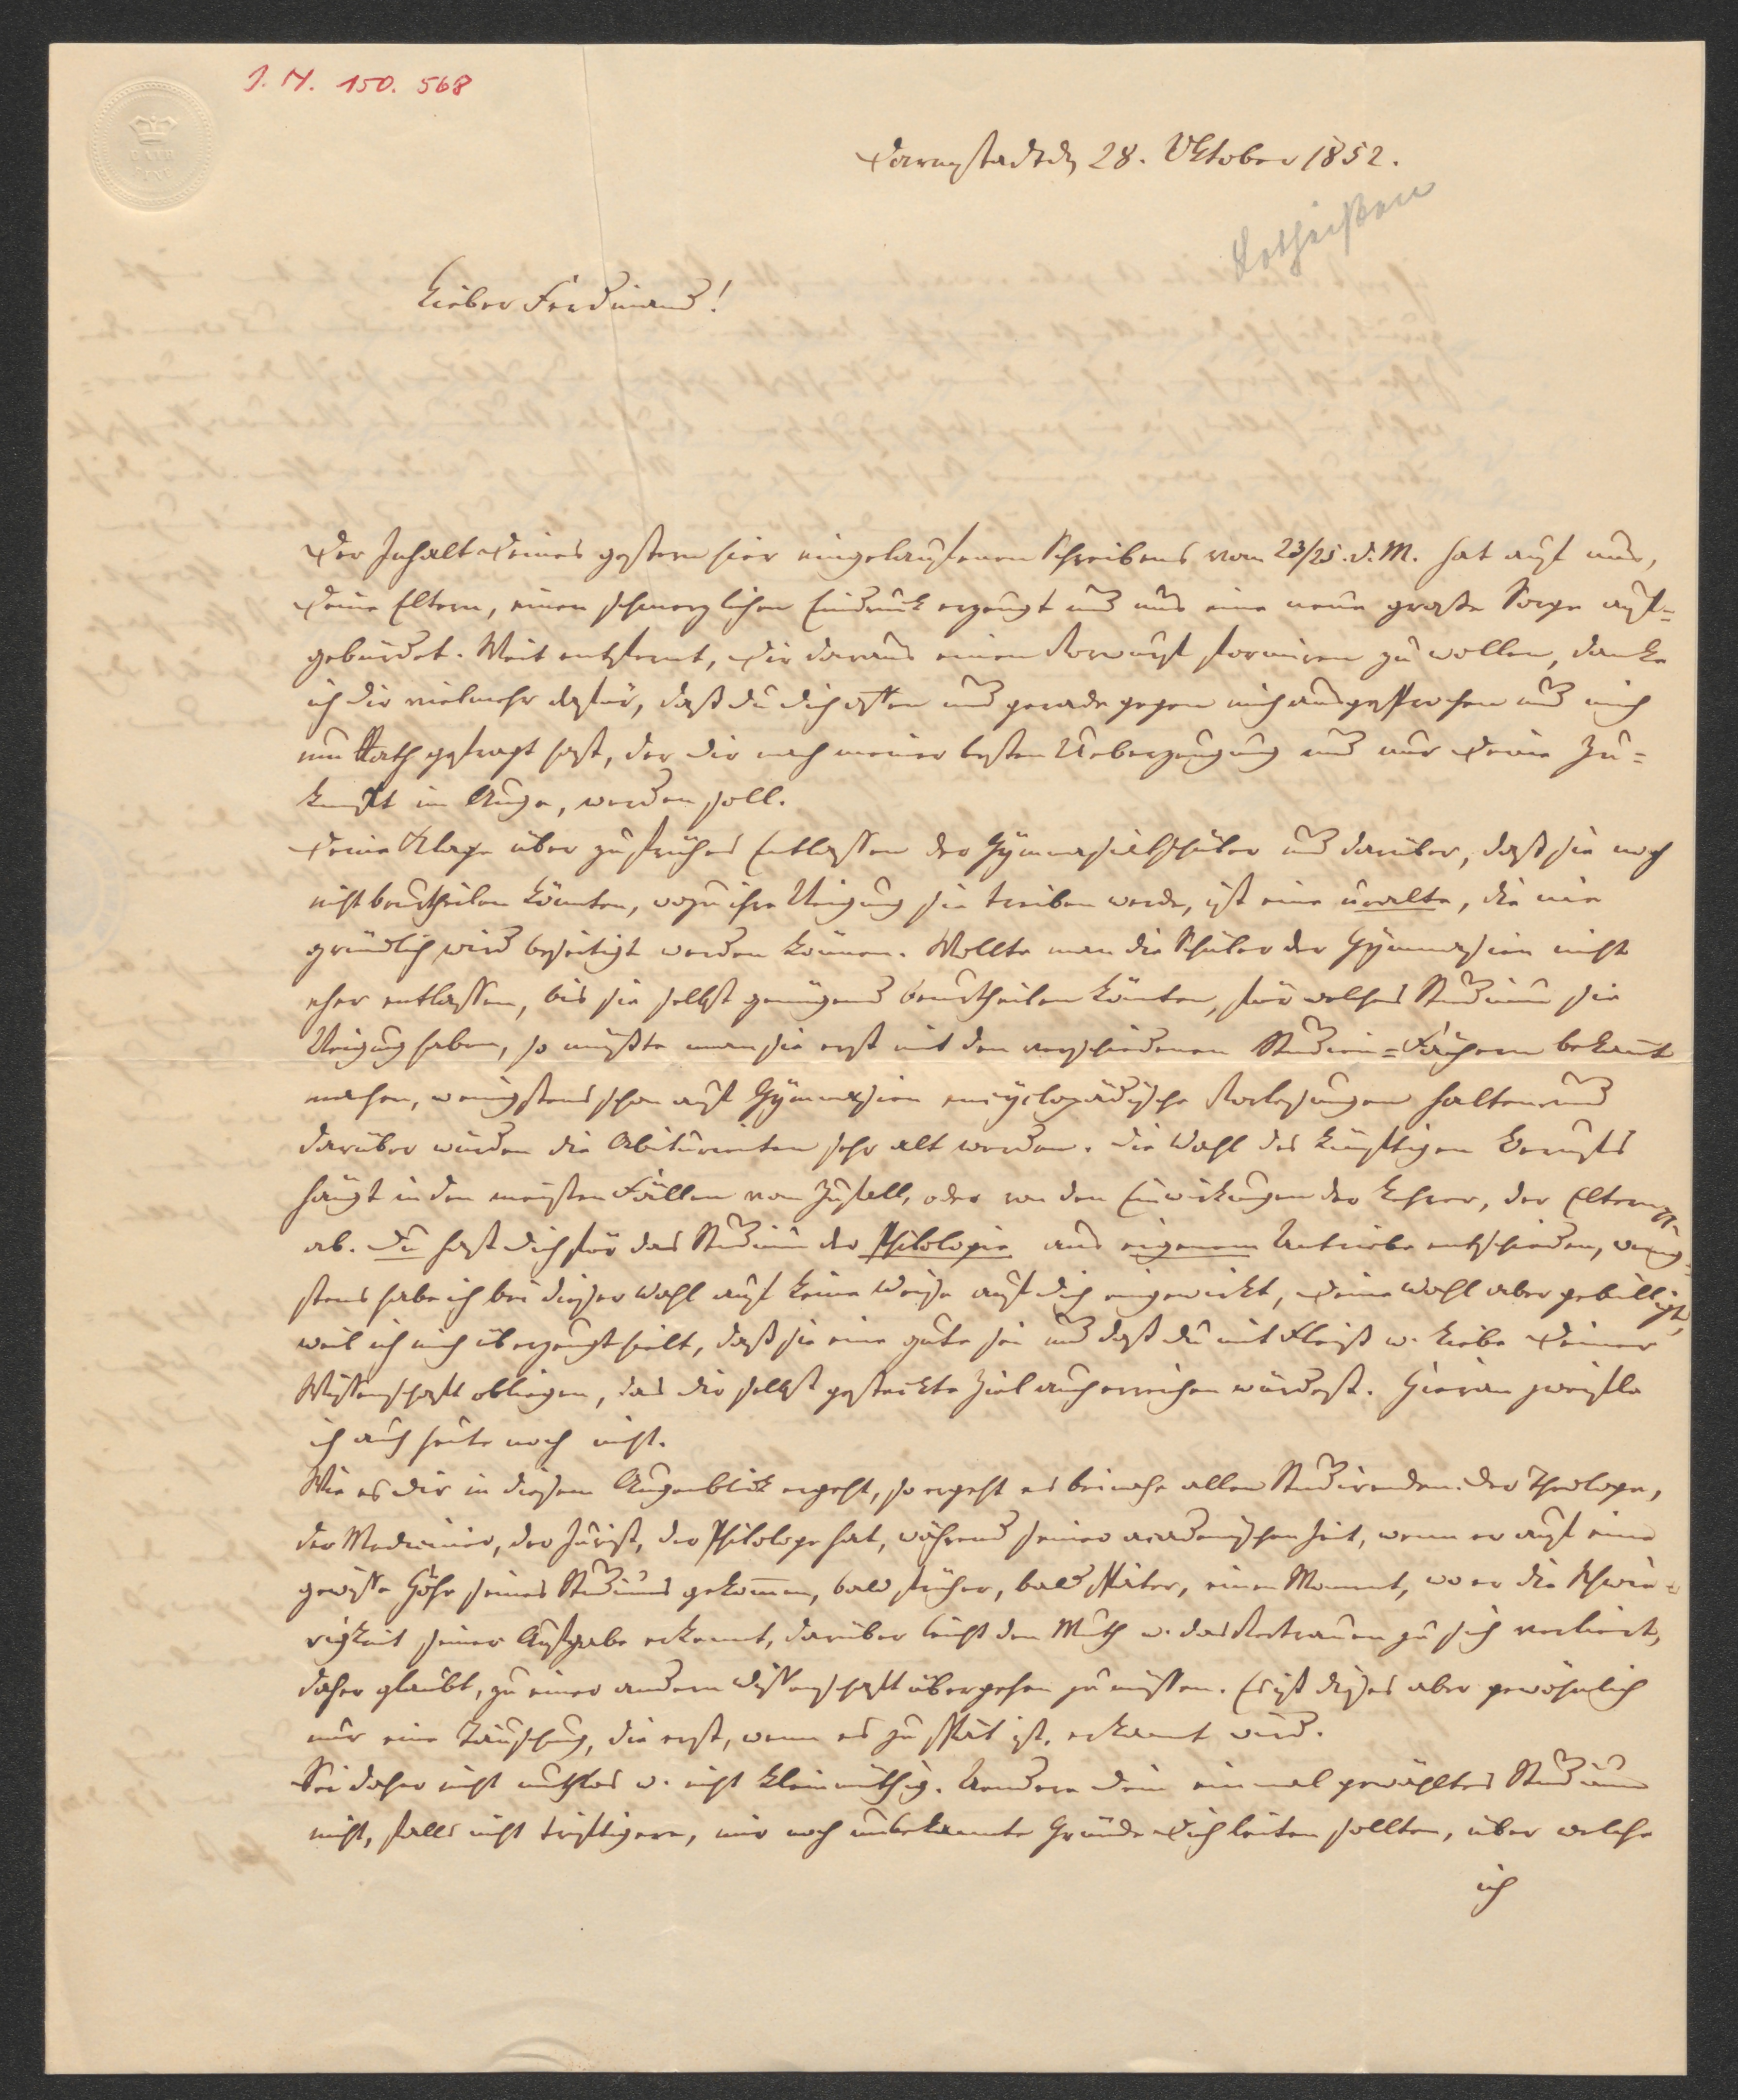 J. N. 150. 568
Darmstadt dn 28. Oktober 1852.
Lotheißen
Lieber Ferdinand!
Der Inhalt Deines gestern hier eingelaufenen Schreibens vom 23/25. d. M. hat auf uns,
Deine Eltern, einen schmerzlichen Eindruck erzeugt und uns eine neue große Sorge auf=
gebürdet. Weit entfernt, Dir daraus einen Vorwurf formiren zu wollen, danke
ich dir vielmehr dafür, daß du dich offen und gerade gegen mich ausgesprochen und mich
um Rath gefragt hast, der dir nach meiner besten Ueberzeugung und nur Deine Zu=
kunft im Auge, werden soll.
Deine Klage über zu frühes Entlassen der Gymnasialschüler und darüber, daß sie noch
nicht beurtheilen könnten, wozu ihre Neigung sie treiben werde, ist eine uralte, die nie
gründlich wird beseitigt werden können. Wollte man die Schüler der Gymnasien nicht
eher entlassen, bis sie selbst genügend beurtheilen könnten, für welches Studium sie
Neigung haben, so müßte man sie erst mit den verschiedenen Studien=Fächern bekannt
machen, wenigstens schon auf Gymnasien encyclopädische Vorlesungen halten und
darüber würden die Abiturienten sehr alt werden. Die Wahl des künftigen Berufs
hängt in den meisten Fällen vom Zufall, oder von den Einwirkungen der Lehrer, der Eltern
ab. Du hast dich für das Studium der Philologie aus eigenem Antriebe entschieden, wenig=
stens habe ich bei dieser Wahl auf keine Weise auf dich eingewirkt, Deine Wahl aber gebilligt,
weil ich mich überzeugt hielt, daß sie eine gute sei und daß du mit Fleiß u. Liebe Deiner
Wissenschaft obliegen, das dir selbst gesteckte Ziel auch erreichen würdest. Hieran zweifle
ich auch heute noch nicht.
Wie es dir in diesem Augenblick ergeht, so ergeht es beinahe allen Studirenden. Der Theologe,
der Mediciner, der Jurist, der Philologe hat, während seiner academischen Zeit, wenn er auf eine
gewisse Höhe seines Studiums gekommen, bald früher, bald später, einen Moment, wo er die Schwie=
rigkeit seiner Aufgabe erkennt, darüber leicht den Muth u. das Vertrauen zu sich verliert,
daher glaubt, zu einer andern Wissenschaft übergehen zu müssen. Es ist dieses aber gewöhnlich
nur eine Täuschung, die erst, wenn es zu spät ist, erkannt wird.
Sei daher nicht muthlos u. nicht kleinmüthig. Aendere dein einmal gewähltes Studium
nicht, falls nicht triftigere, mir noch unbekannte Gründe Dich leiten sollten, über welche
ich